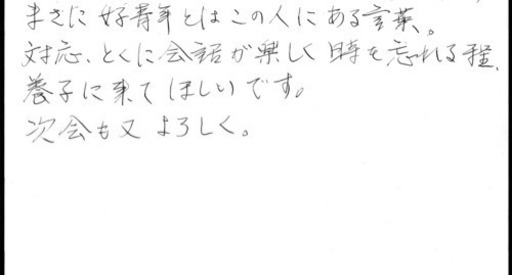 まさに好青年とはこの人にある言葉。
対応、とくに会話が楽しく時を忘れる程、
養子に来てほしいです。
次会も又よろしく。